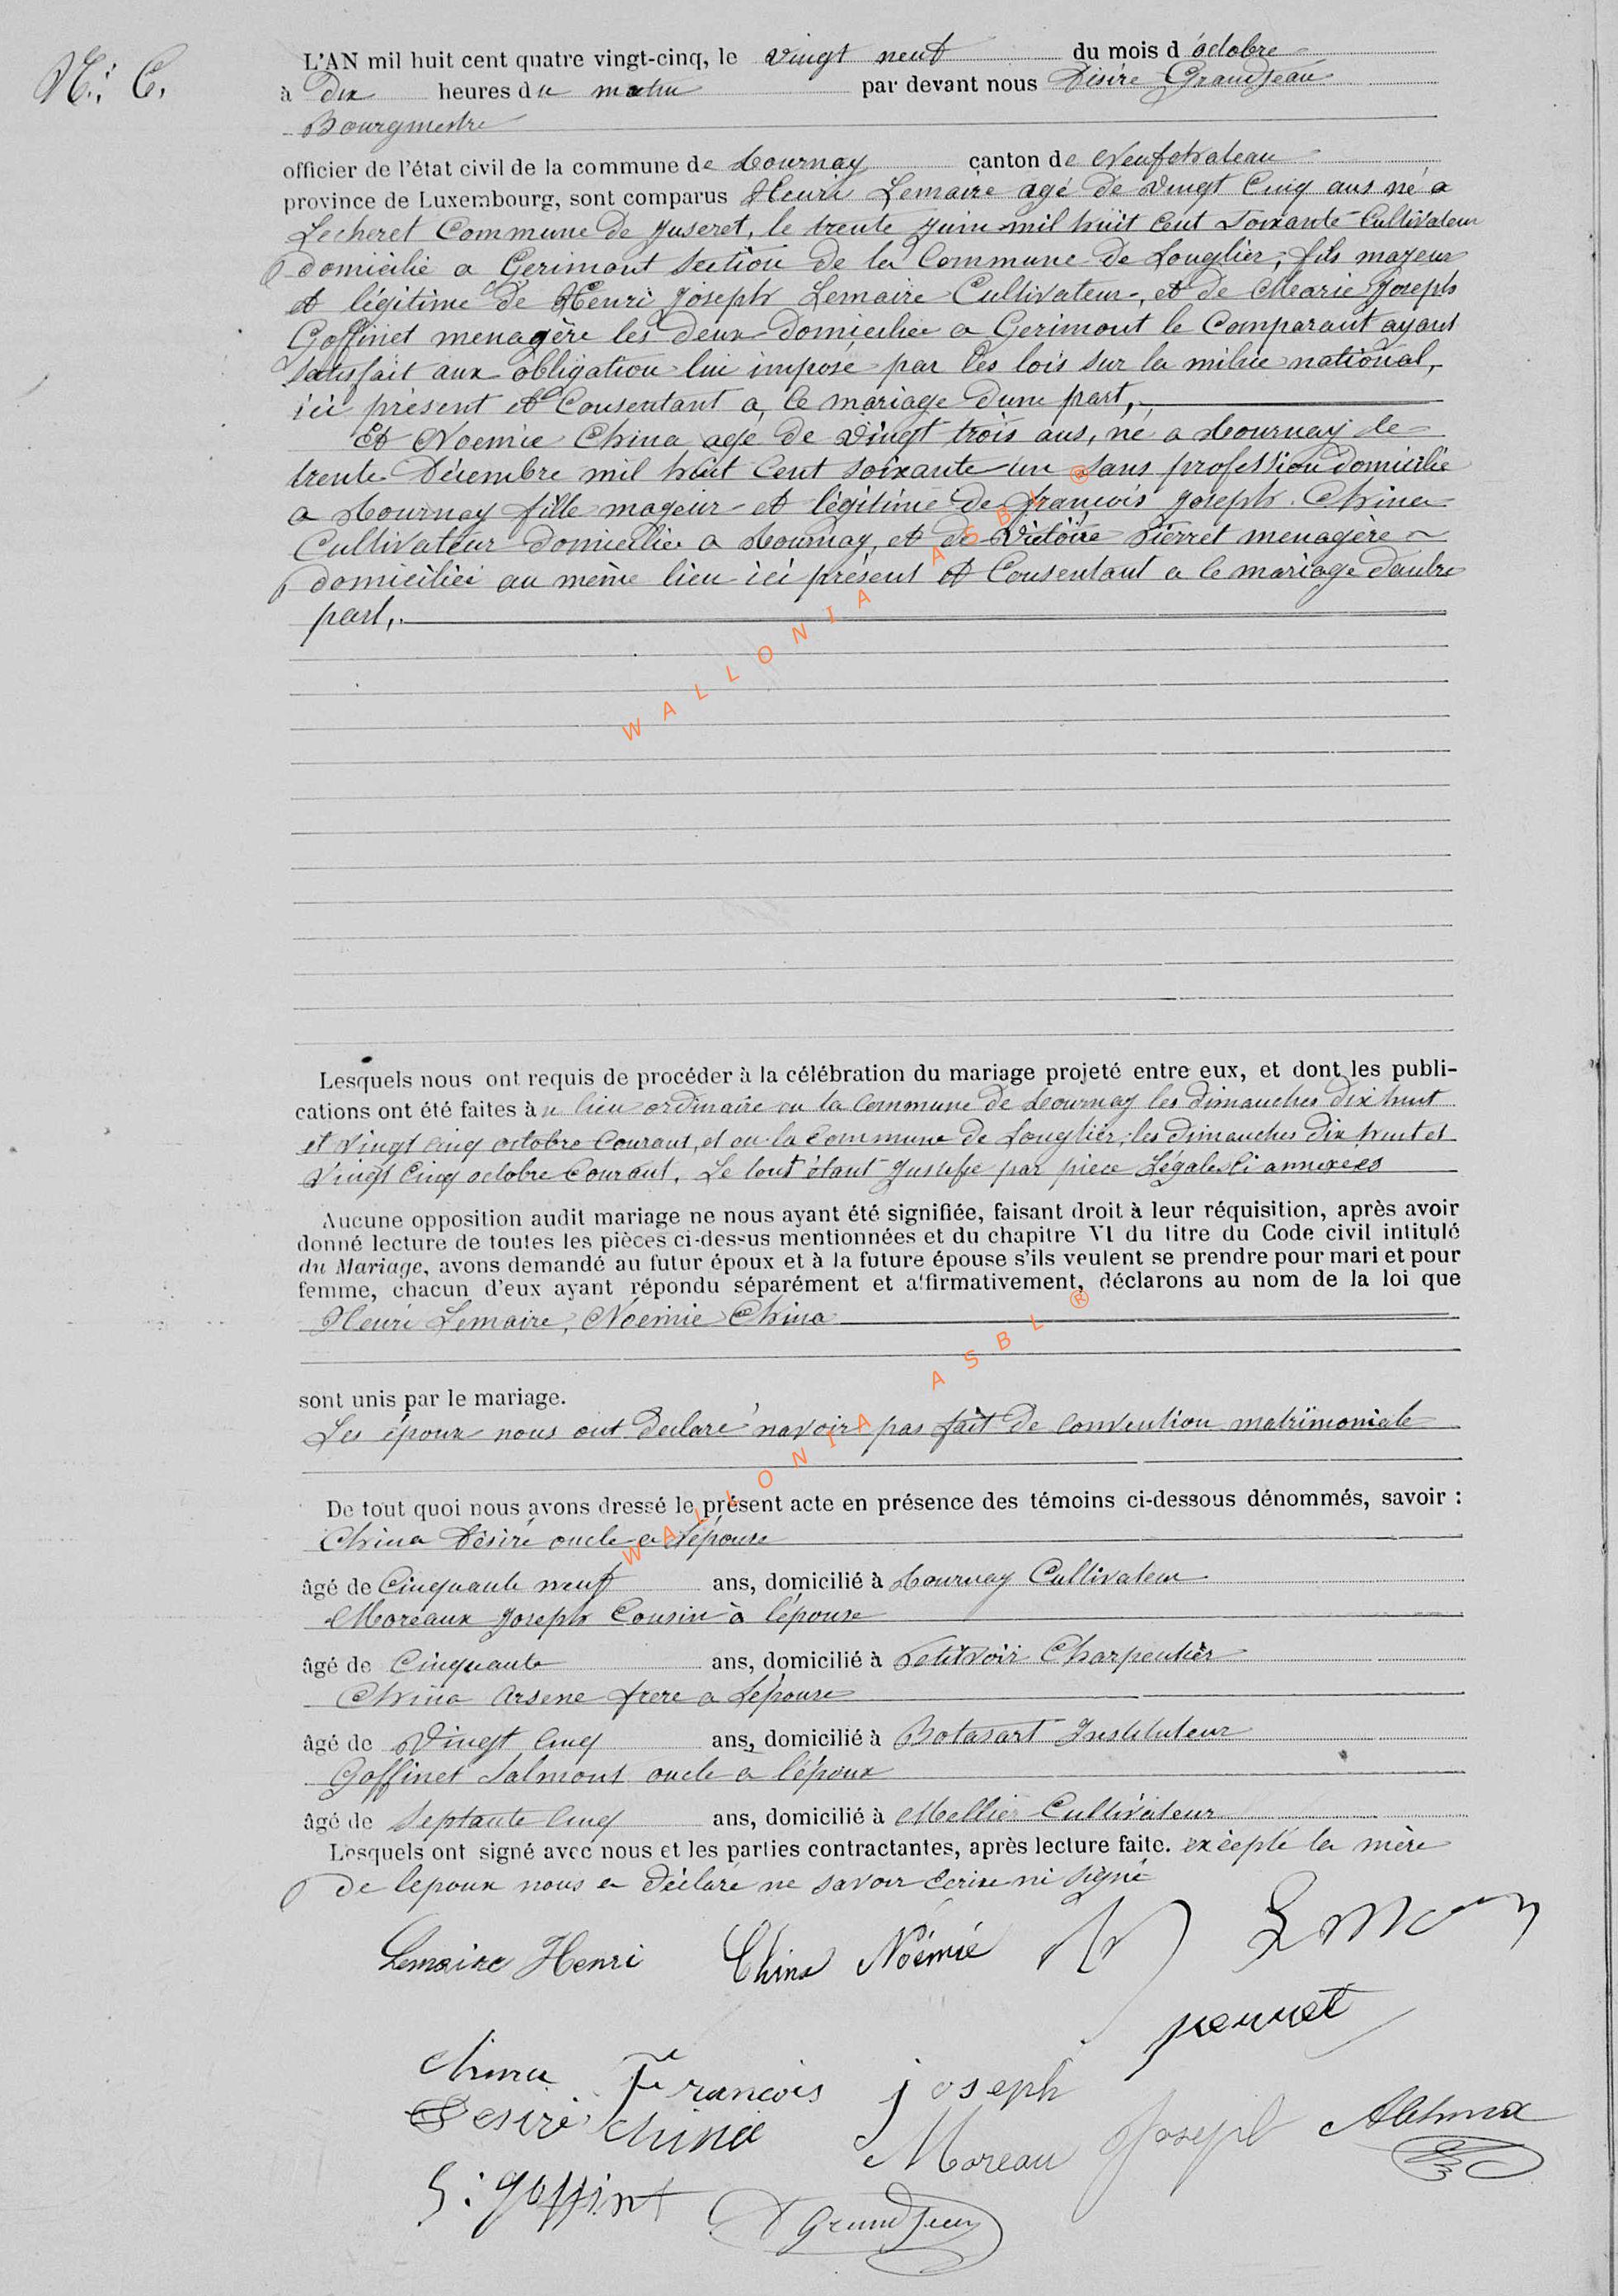 N.: C.
L'AN mil huit cent quatre vingt-cinq, le vingt neuf du mois d'octobre
à dix heures du matin par devant nous Désiré Grandjean
Bourgmestre
officier de l'état civil de la commune de Tournay canton de Neufchateau
province de Luxembourg, sont comparus Henri Lemaire agé de vingt cinq ans né a
Lecheret Commune de Juseret, le trente juin mil huit cent soixante Cultivateur
domicilié a Gerimont section de la Commune de Longlier, fils majeur
et légitime de Henri Joseph Lemaire Cultivateur, et de Marie Joseph
Goffinet menagère les deux domiciliée a Gerimont le Comparant ayant
satisfait aux obligation lui imposé par les lois sur la milice national,
ici présent et Consentant a ce mariage dune part,
Et Noemie China agé de vingt trois ans, né a Tournay le
trente Décembre mil huit cent soixante un sans profession domicilié
a Tournay fille majeur et légitime de françois Joseph China
Cultivateur domicilié a Tournay, et de Victoire Pierret menagère
domiciliée au même lieu ici présent et Consentant a ce mariage dautre
part,
Lesquels nous ont requis de procéder à la célébration du mariage projeté entre eux, et dont les publi-
cations ont été faites au lieu ordinaire en la Commune de Tournay les dimanches dix huit
et vingt cinq octobre Courant, et en la Commune de Longlier, les dimanches dix huit et
vingt cinq octobre Courant. Le tout étant justifié par pièce Légales Ci annexées
Aucune opposition audit mariage ne nous ayant été signifiée, faisant droit à leur réquisition, après avoir
donné lecture de toutes les pièces ci-dessus mentionnées et du chapitre VI du titre du Code civil intitulé
du Mariage, avons demandé au futur époux et à la future épouse s'ils veulent se prendre pour mari et pour
femme, chacun d'eux ayant répondu séparément et affirmativement, déclarons au nom de la loi que
Henri Lemaire, Noémie China
sont unis par le mariage.
Les époux nous ont déclaré navoir pas fait de convention matrimoniale
De tout quoi nous avons dressé le présent acte en présence des témoins ci-dessous dénommés, savoir :
China Désiré oncle a lépouse
âgé de Cinquante neuf ans, domicilié à Tournay Cultivateur
Moreaux Joseph Cousin à lépouse
âgé de Cinquante ans, domicilié à Petitvoir Charpentier
China Arsene frere a lépouse
âgé de Vingt cinq ans, domicilié à Botasart Instituteur
Goffinet Salmont oncle a l'époux
âgé de Septante cinq ans, domicilié à Mellier Cultivateur
Lesquels ont signé avec nous et les parties contractantes, après lecture faite. excepté la mère
de lepoux nous a déclaré ne savoir ecrire ni signé
Lemaire Henri China Noémie
China François joseph
Desiré China Moreau Joseph AChina
S: goffint Grandjean
WALLONIA ASBL ®
WALLONIA ASBL ®